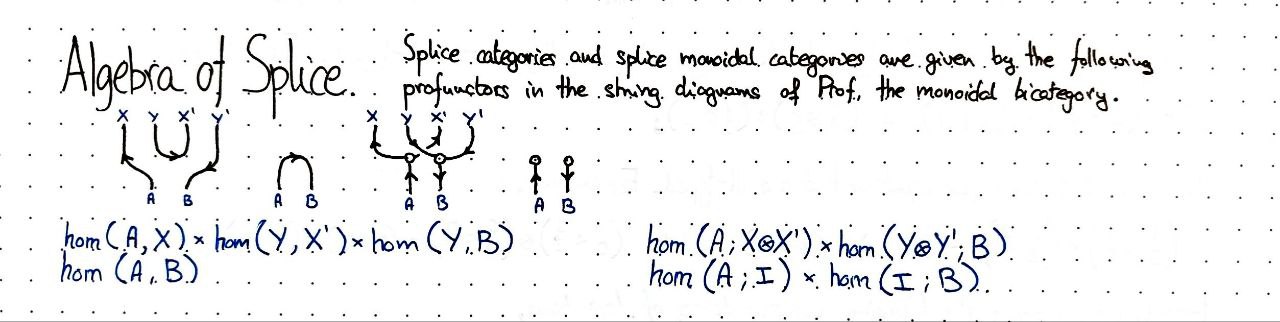 Algebra of Splice.
Splice categories and splice monoidal categories are given by the following
profunctors in the string diagrams of Prof, the monoidal bicategory.
X Y X' Y'
X Y X' Y'
A B
A B
A B
A B
hom(A,X) × hom(Y,X') × hom(Y,B)
hom(A,B)
hom(A;X⊗X') × hom(Y⊗Y';B).
hom(A;I) × hom(I;B).